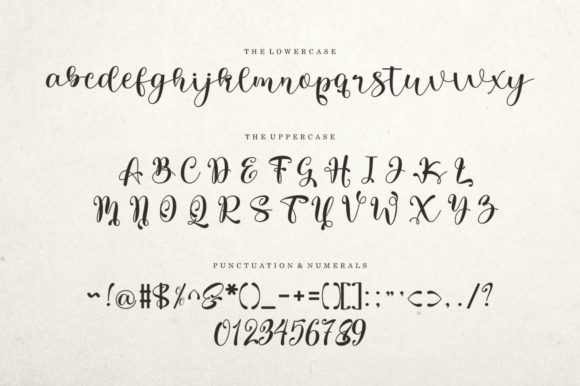 THE LOWERCASE
abcdefghijklmnopqrstuvwxy
THE UPPERCASE
A B C D E F G H I J K L
M N O Q R S T U V W X Y Z
PUNCTUATION & NUMERALS
~!@#$%^&*()_-+={}[]:;"'<>,./?
0123456789